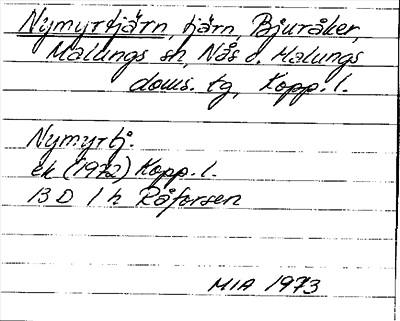 Nymyrtjärn, tjärn, Bjuråker,
Malungs sn, Nås o. Malungs
doms. tg, Kopp. l.
Nymyrtj.
ek (1972) Kopp. l.
13 D 1 h Råforsen
MIA 1973